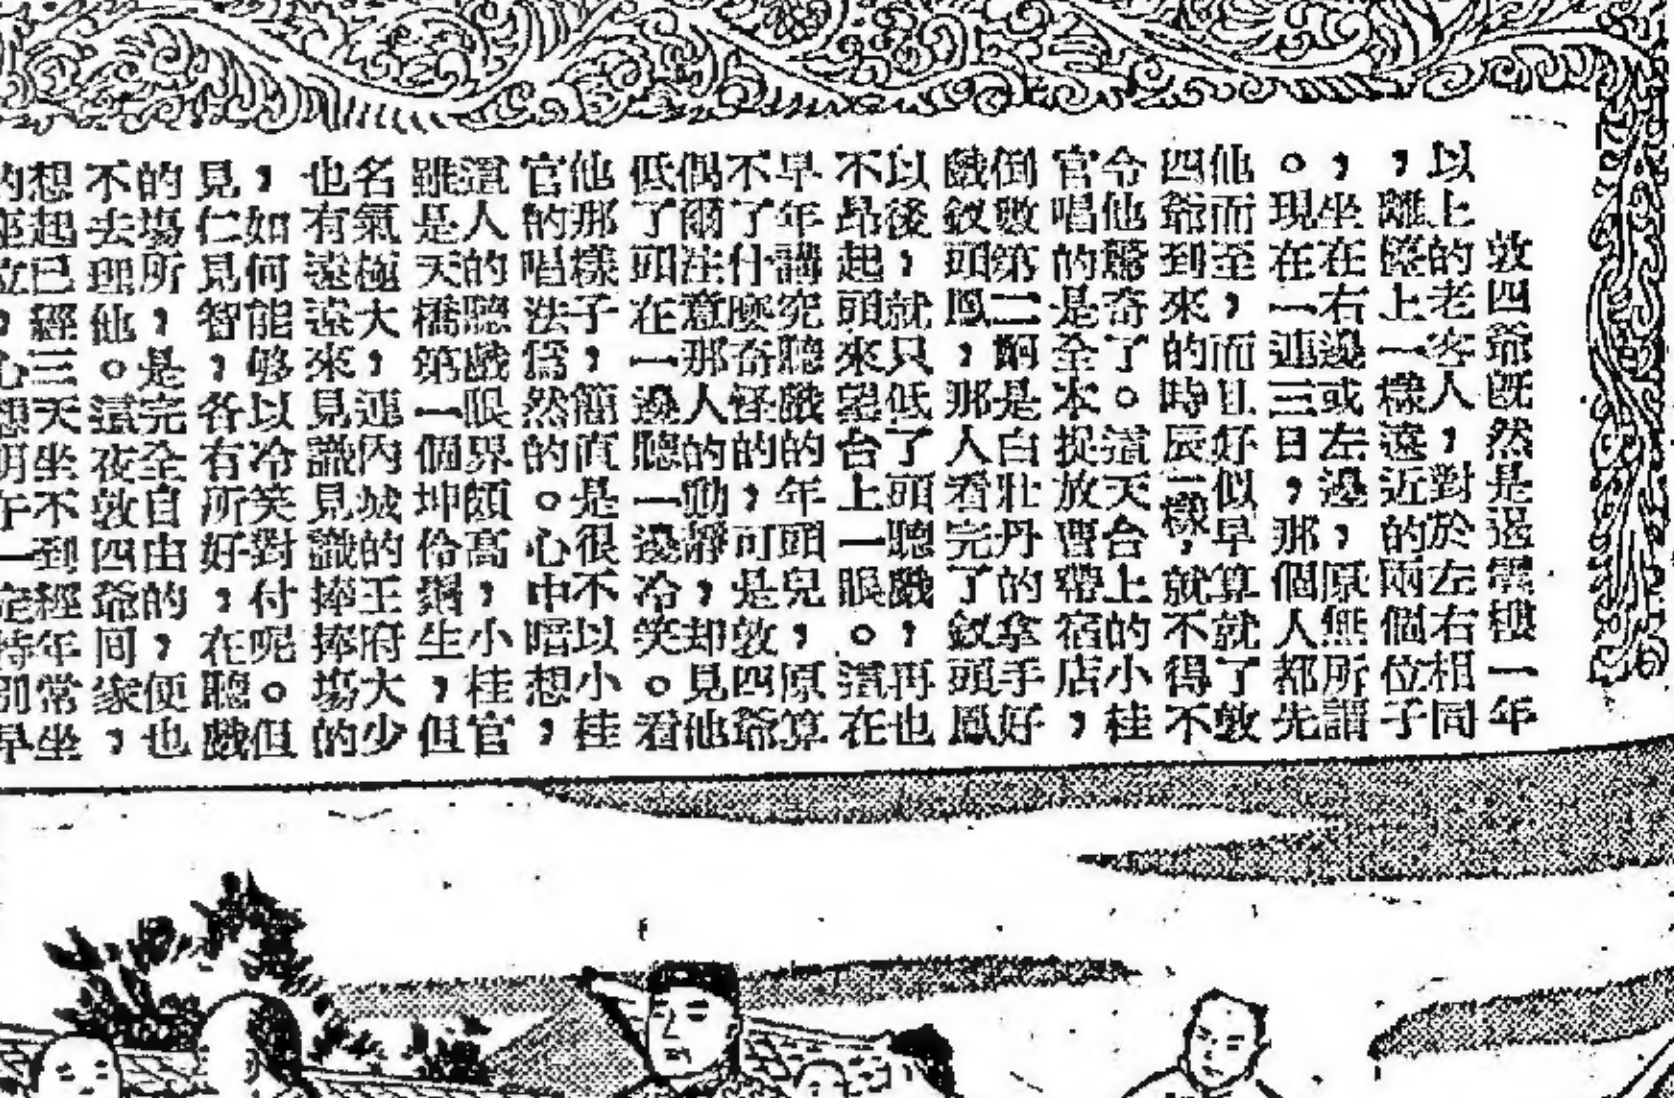 敦四爺既然是這雲樓一年
以上的老客人,對於左右相同
,離臺上一樣遠近的兩個位子
,坐在右邊或左邊,原無所謂
。現在一連三日,那個人都先
他而至,而且好似早算就了敦
四爺到來的時辰一樣,就不得不
令他驚奇了。這天台上的小桂
官唱的是全本捉放曹帶宿店,
倒數第二齣是白牡丹的拿手好
戲釵頭鳳,那人看完了釵頭鳳
以後,就只低了頭聽戲,再也
不昂起頭來望台上一眼。這在
早年講究聽戲的年頭兒,原算
不了什麼奇怪的,可是敦四爺
偶爾注意那人的動靜,却見他
低了頭在一邊聽一邊冷笑。看
他那樣子,簡直是很不以小桂
官的唱法爲然的。心中暗想,
這人的聽戲眼界頗高,小桂官
雖是天橋第一個坤伶鬚生,但
名氣極大,連內城的王府大少
也有遠遠來見識見識捧捧場的
,如何能够以冷笑對付呢。但
見仁見智,各有所好,在聽戲
的場所,是完全自由的,便也
不去理他。這夜敦四爺回家,
想起已經三天坐不到經年常坐
的座位,心想明午一定特別早